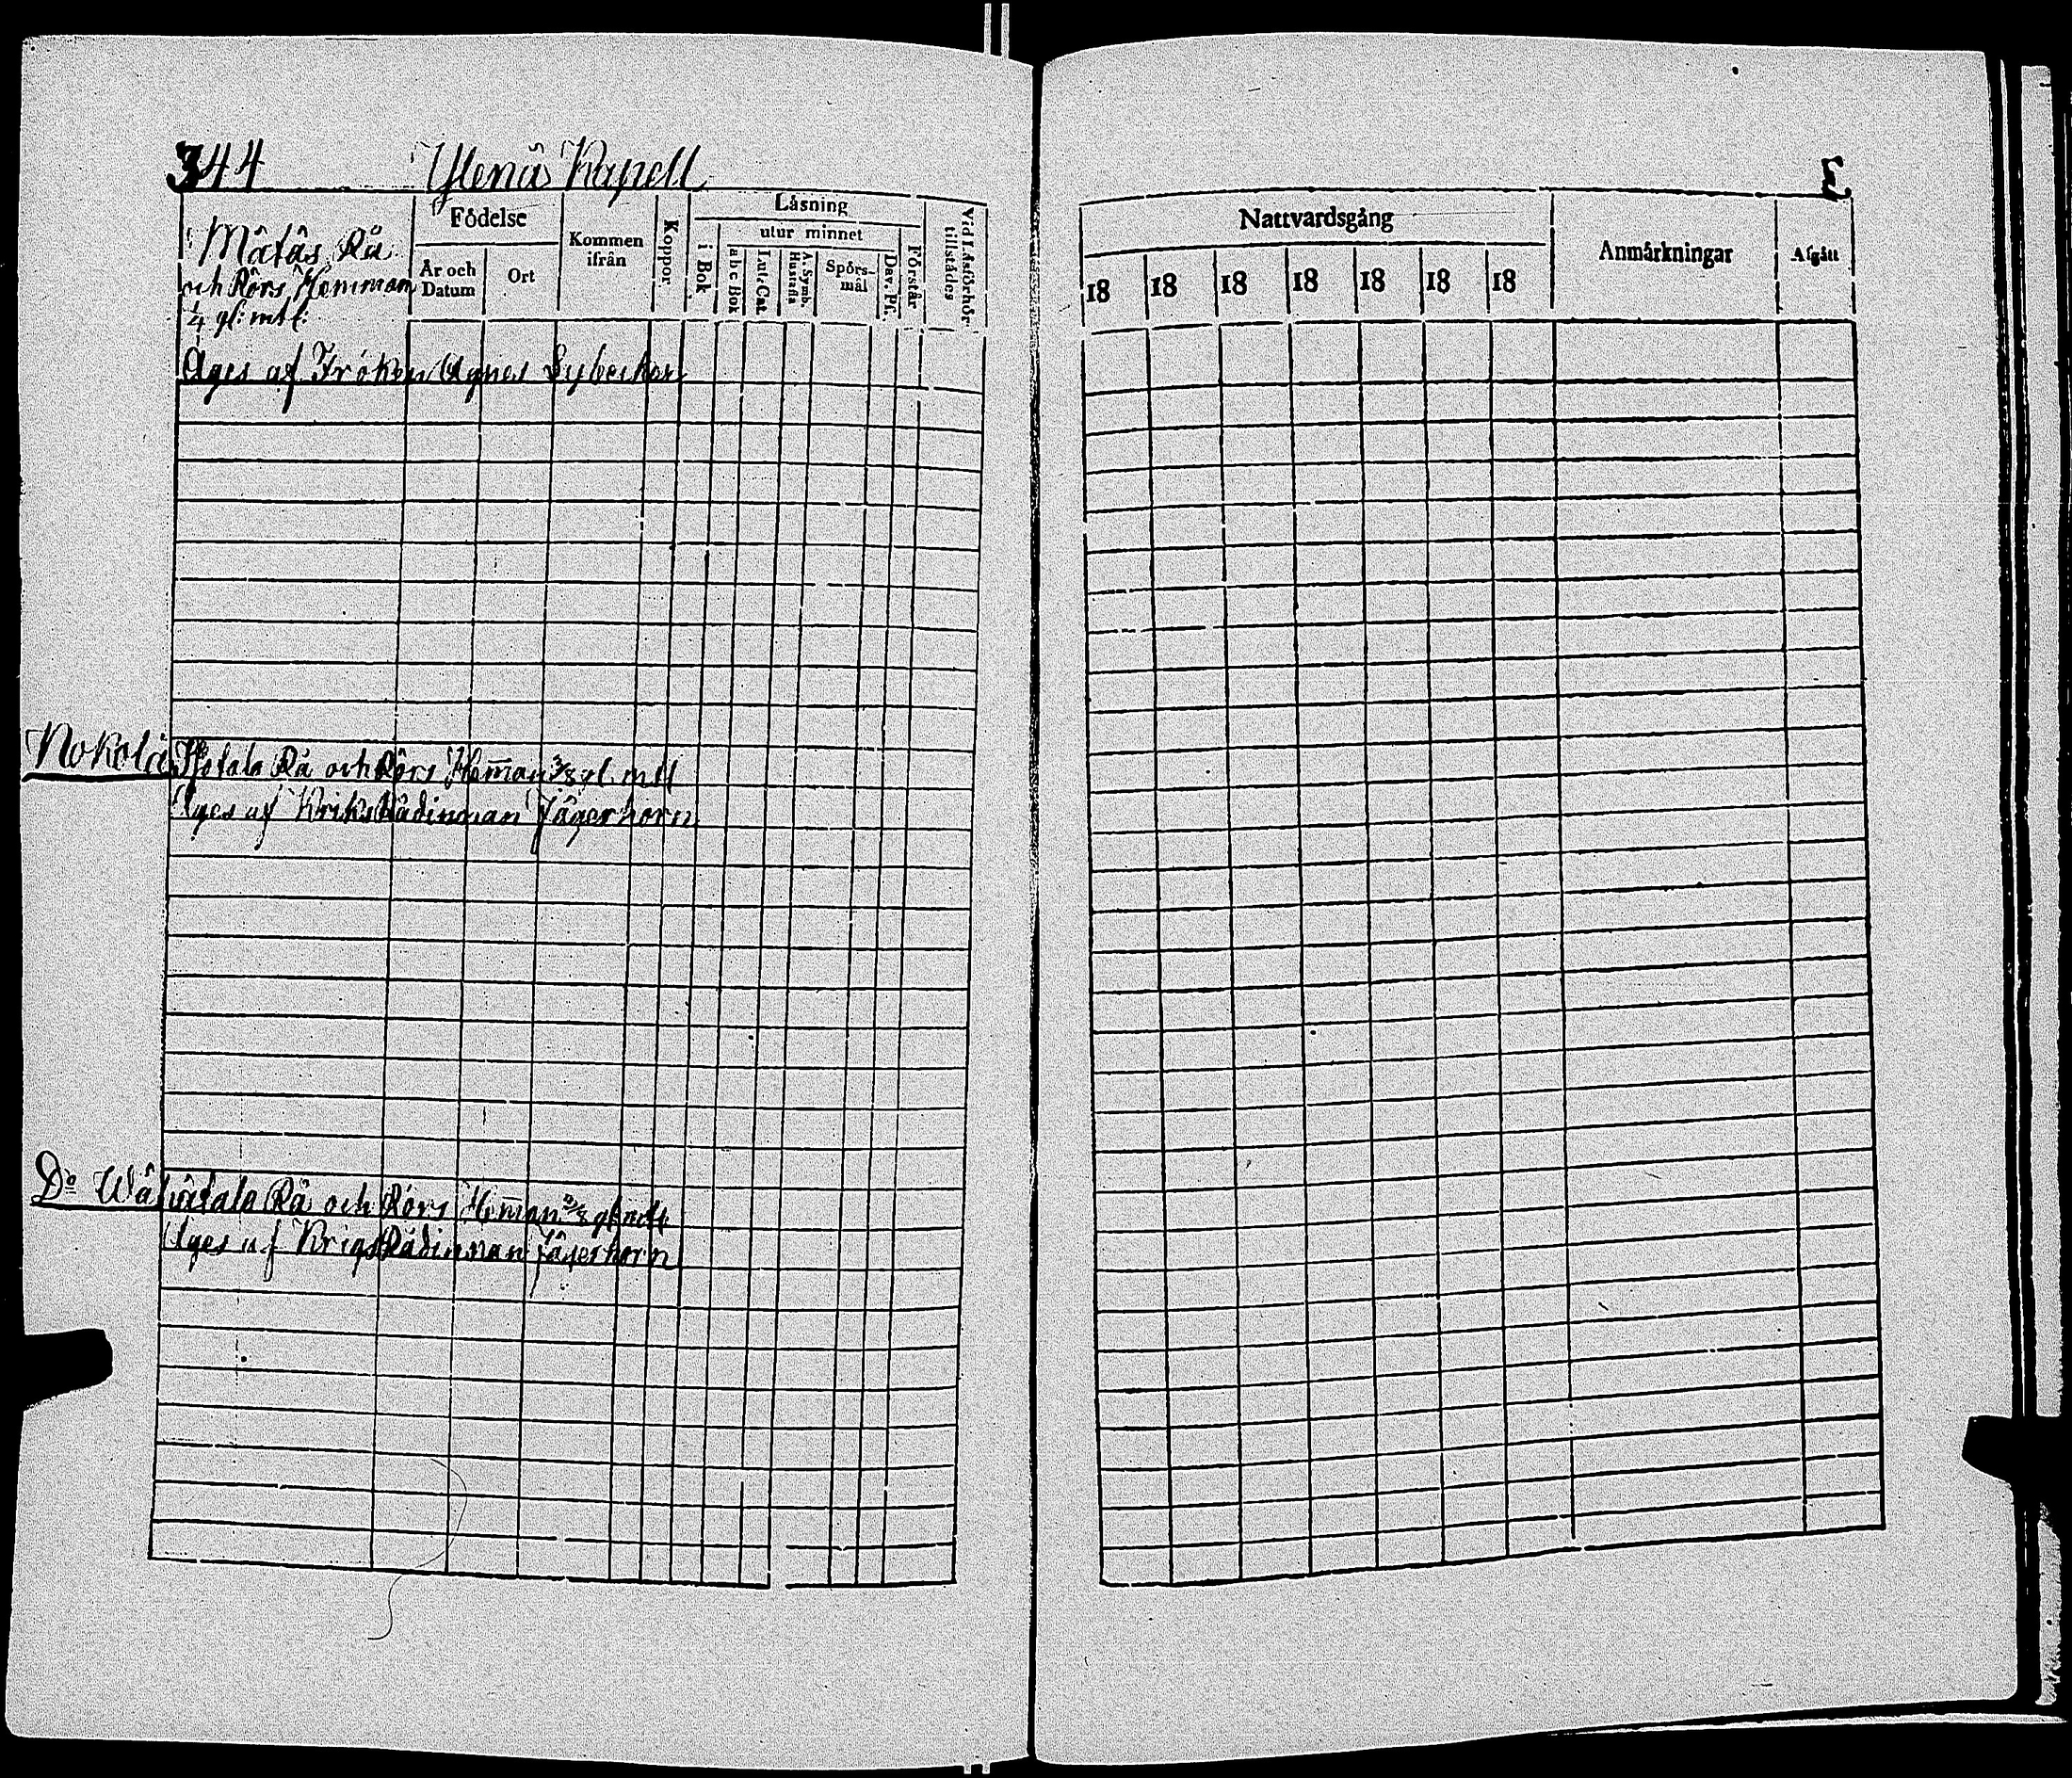 344 Ylenäs Kapell
Mätäs Rå
och Rörs Hemman
1/4 gl: mtl:
Födelse
År och Datum
Ort
Kommen ifrån
Koppor
Läsning
i Bok
utur minnet
a b c Bok
Lut. Cat.
A. Symb. Hustafla
Spörs-mål
Dav. Ps.
Förstår
Vid Läsförhör tillstådes
Äges af Fröken Agnes
Nokola Isotalo Rå och Rörs Heman 3/8 gl. mtl
Äges af Kriks Rådinnan Jägerhorn
Do Wähätalo Rå och Rörs Heman gl mtl
Äges af Krigs Rådinnan Jägerhorn
Nattvardsgång
18 18 18 18 18 18 18
Anmärkningar
Afgått